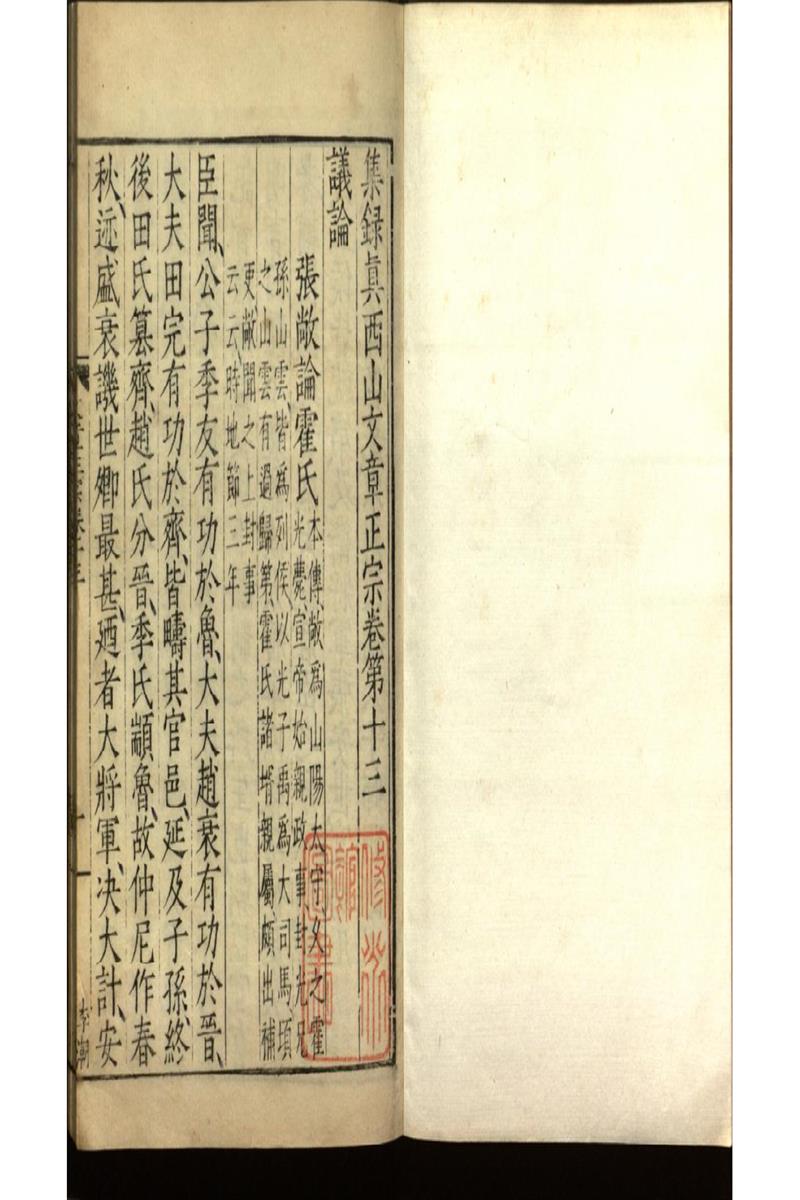 集録眞西山文章正宗卷第十三
議論
張敞論霍氏
本傳敞爲山陽太守久之霍
光薨宣帝始親政事封光兄
孫山雲皆爲列侯以光子禹爲大司馬頃
之山雲有過歸第霍氏諸壻親屬頗出補
吏敞聞之上封事
云云時地節三年
臣聞、公子季友有功於魯、大夫趙衰有功於晉、
大夫田完有功於齊、皆疇其官邑、延及子孫、終
後田氏篡齊、趙氏分晉、季氏顓魯、故仲尼作春
秋、迹盛衰譏世卿最甚、廼者大將軍、决大計、安
李潮